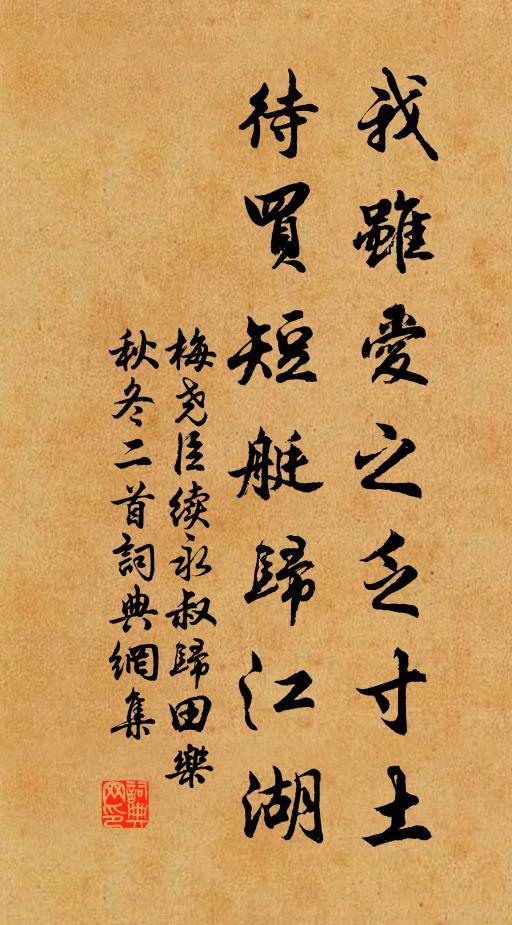 我雖愛之乏寸土
待買短艇歸江湖
梅尧臣續永叔歸田樂
秋冬二首詞典網集
詞典
网印